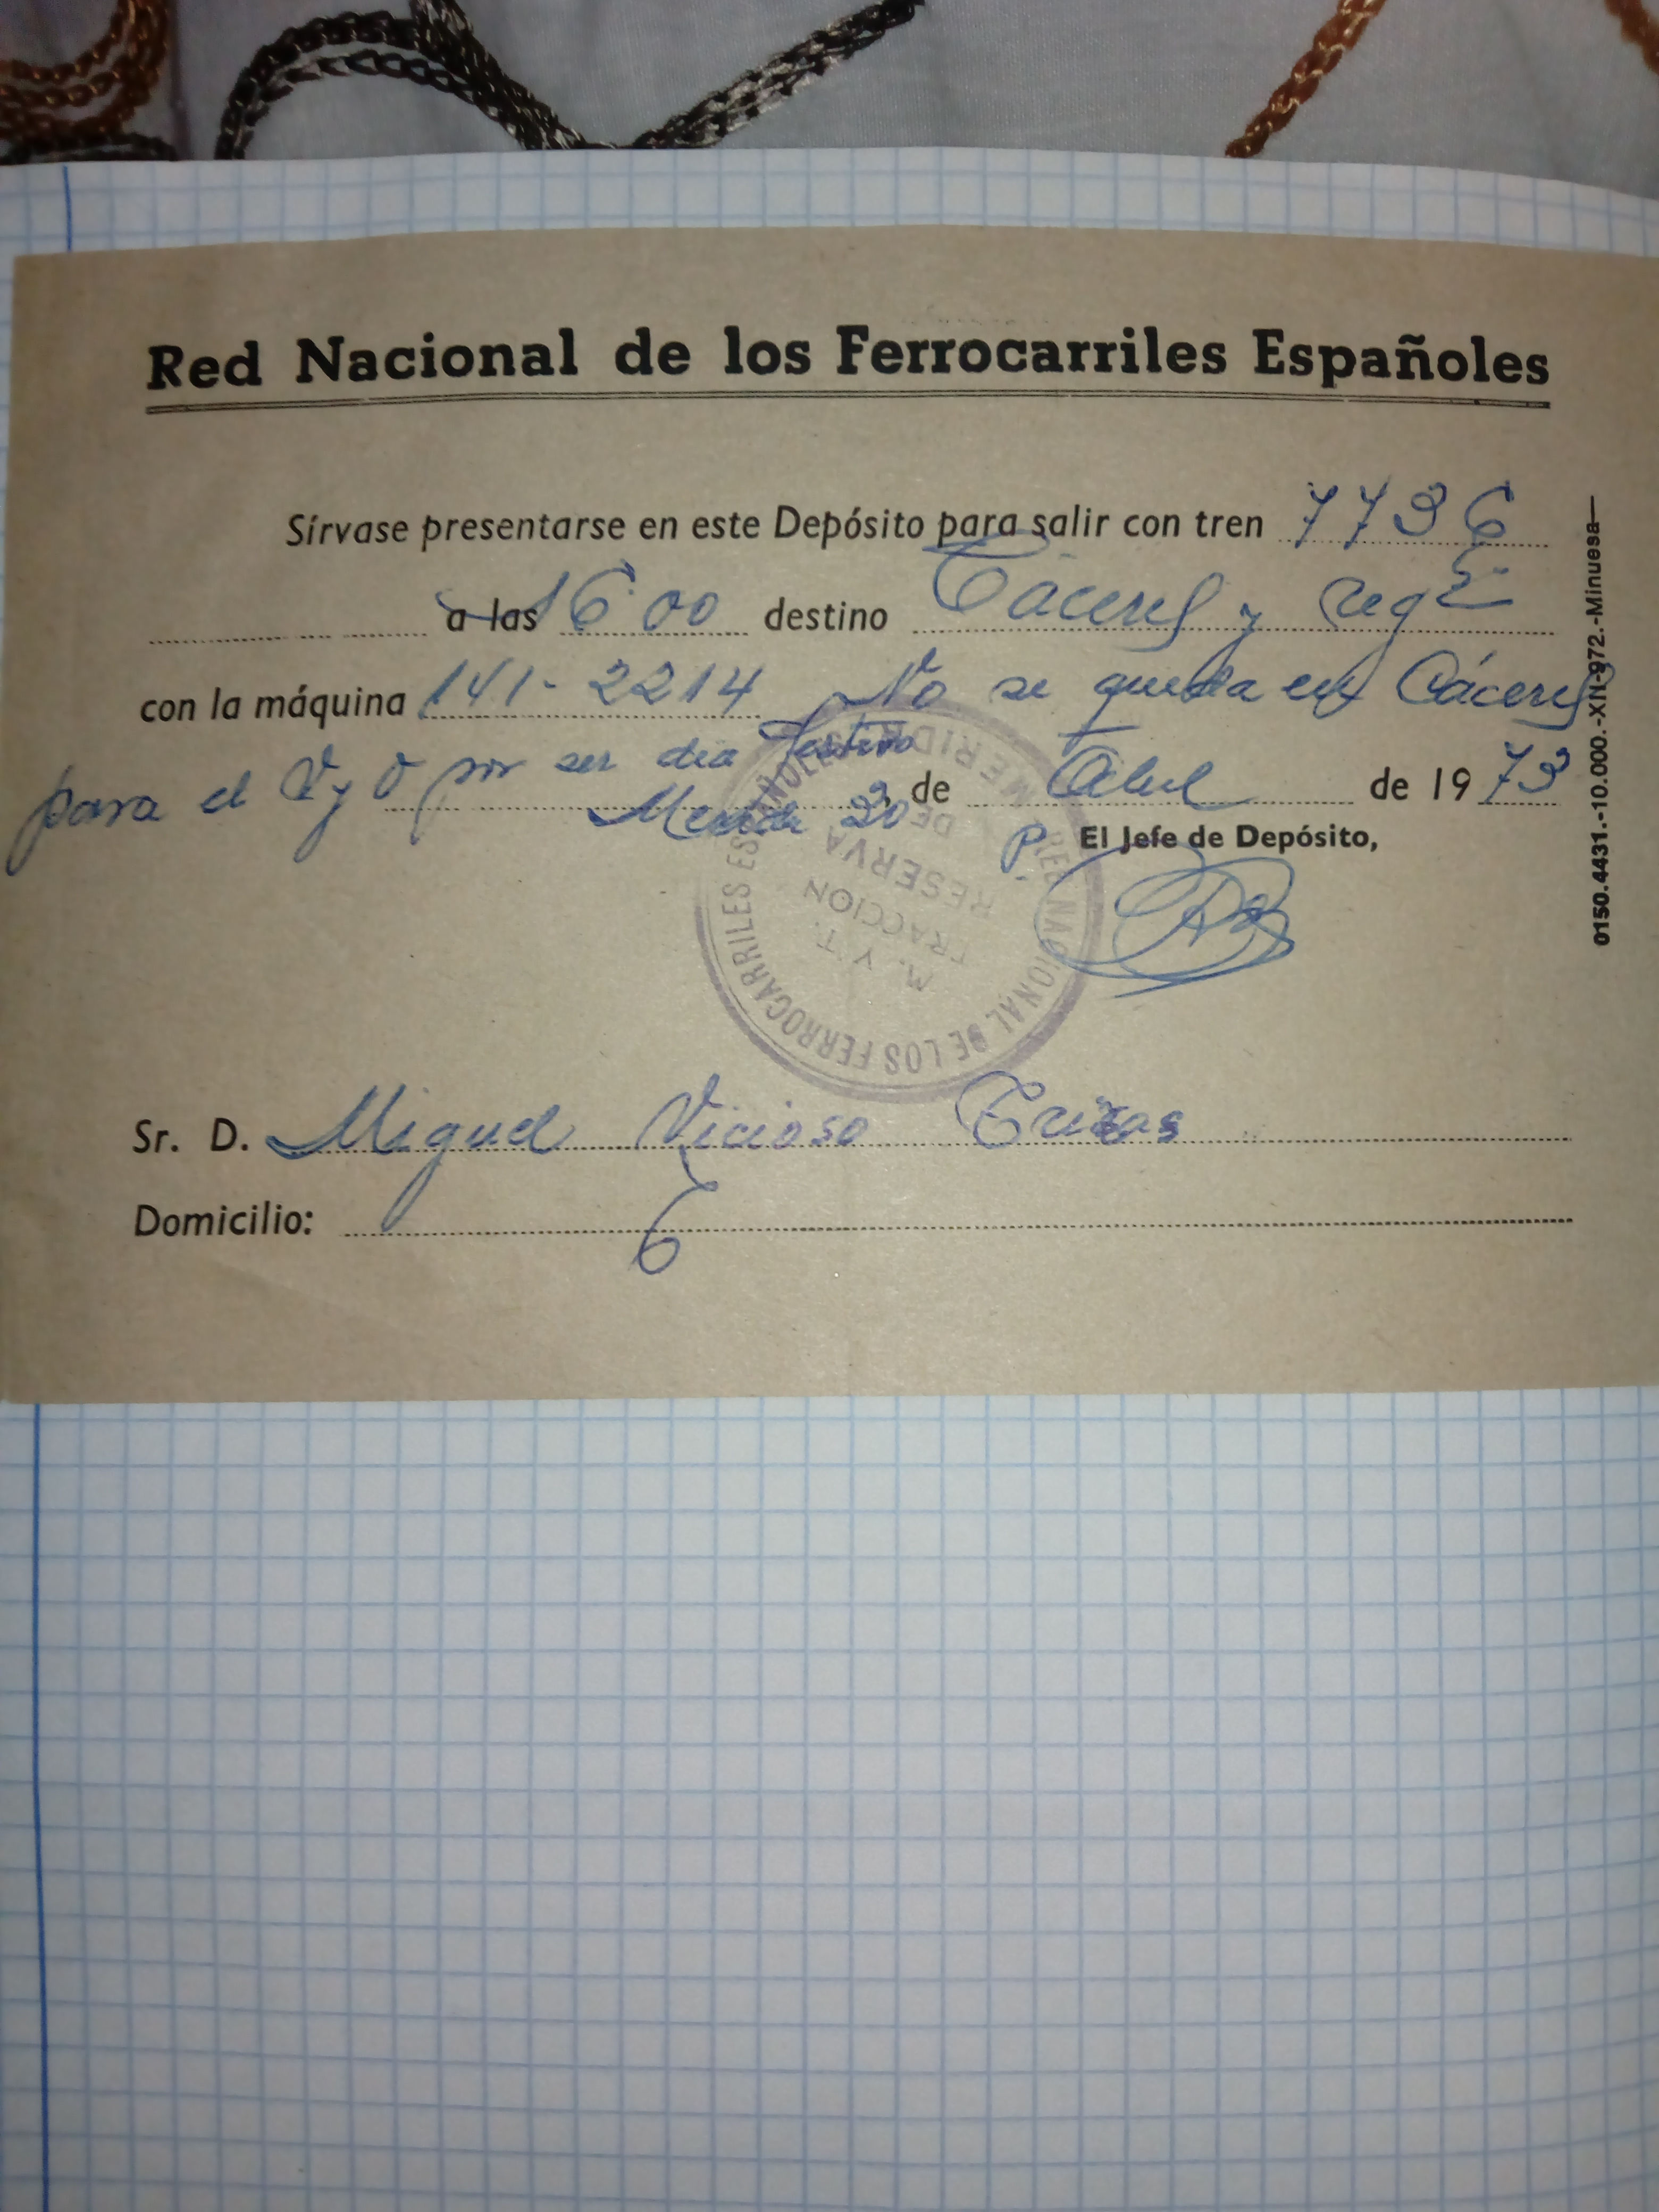 Red Nacional de los Ferrocarriles Españoles
Sírvase presentarse en este Depósito para salir con tren 7736
a las 16'00 destino Cáceres y regº
con la máquina 141-2214 No se queda en Cáceres
para el V y O por ser dia festivo
Merida 20 de Abril de 1973
P. El Jefe de Depósito,
RED NACIONAL DE LOS FERROCARRILES ESPAÑOLES
M. Y T.
TRACCION
RESERVA
DE
MERIDA
Sr. D. Miguel Vicioso
Domicilio:
0150.4431.-10.000.-XII-972.-Minuesa